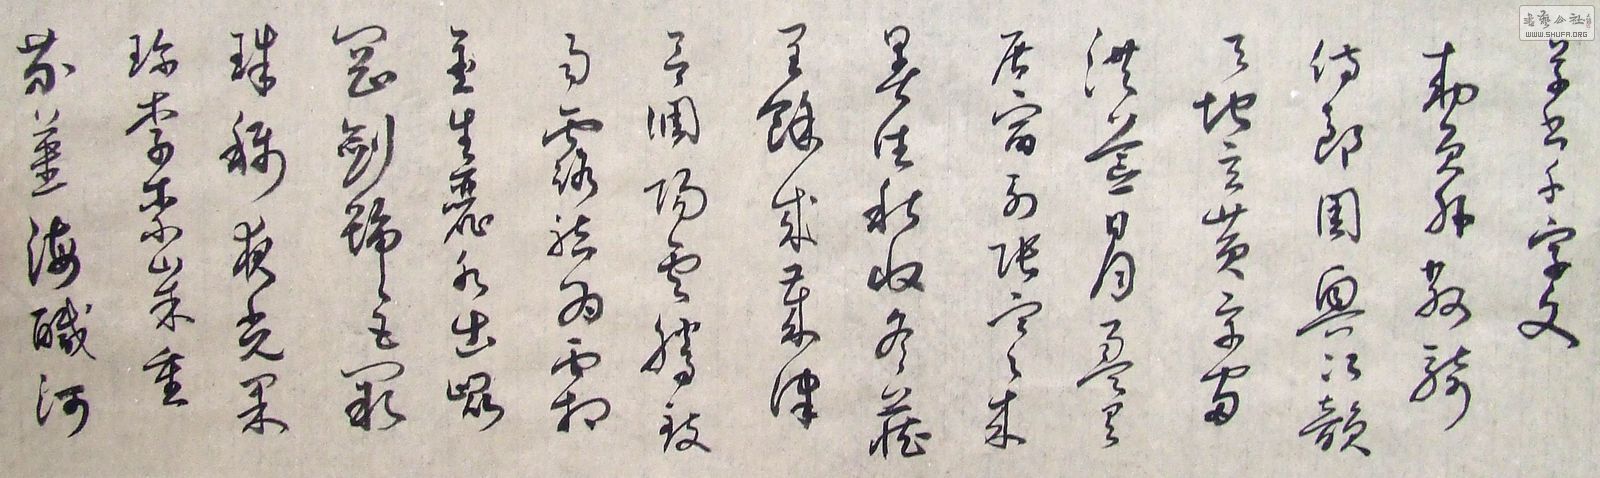 草書千字文
勅員外散騎
侍郎周興次韻
天地玄黄宇宙
洪荒日月盈昃
辰宿列張寒來
暑往秋收冬藏
閏餘成歲律
吕調陽雲騰致
雨露結為霜
金生麗水出崑
岡劍號巨闕
珠稱夜光果
珍李柰菜重
芥薑海醎河
书艺公社
WWW.SHUFA.ORG